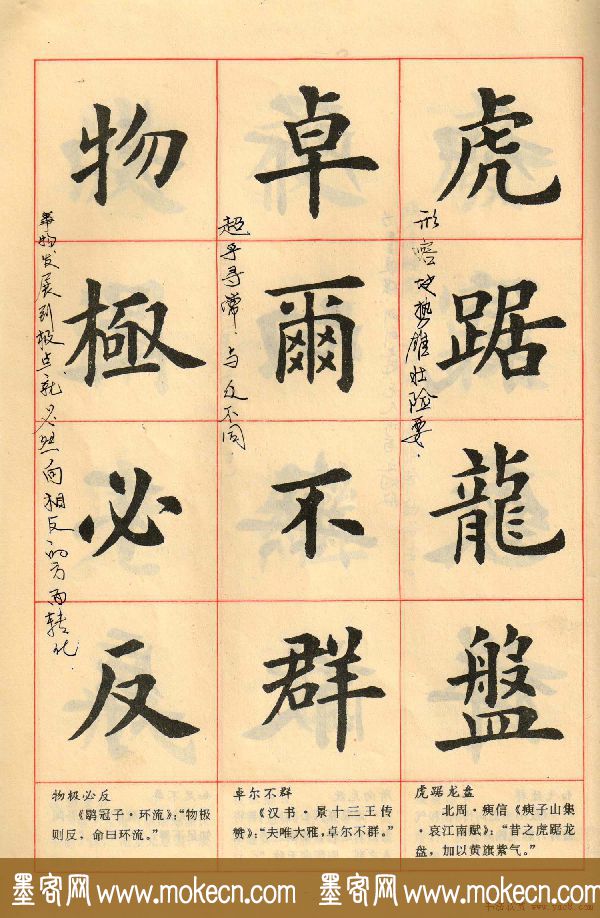 虎踞龍盤
形容地势雄壮险要.
卓爾不群
超乎寻常 与众不同
物極必反
事物发展到极点就必然向相反的方面转化
虎踞龙盘
北周·瘐信《瘐子山集
·哀江南赋》:“昔之虎踞龙
盘,加以黄旗紫气。”
卓尔不群
《汉书·景十三王传
赞》:“夫唯大雅,卓尔不群。”
物极必反
《鹖冠子·环流》:“物极
则反,命曰环流。”
墨客网 www.mokecn.com 墨客网 www.mokecn.com 墨客网
www.mokecn.com 墨客网 www.mokecn.com